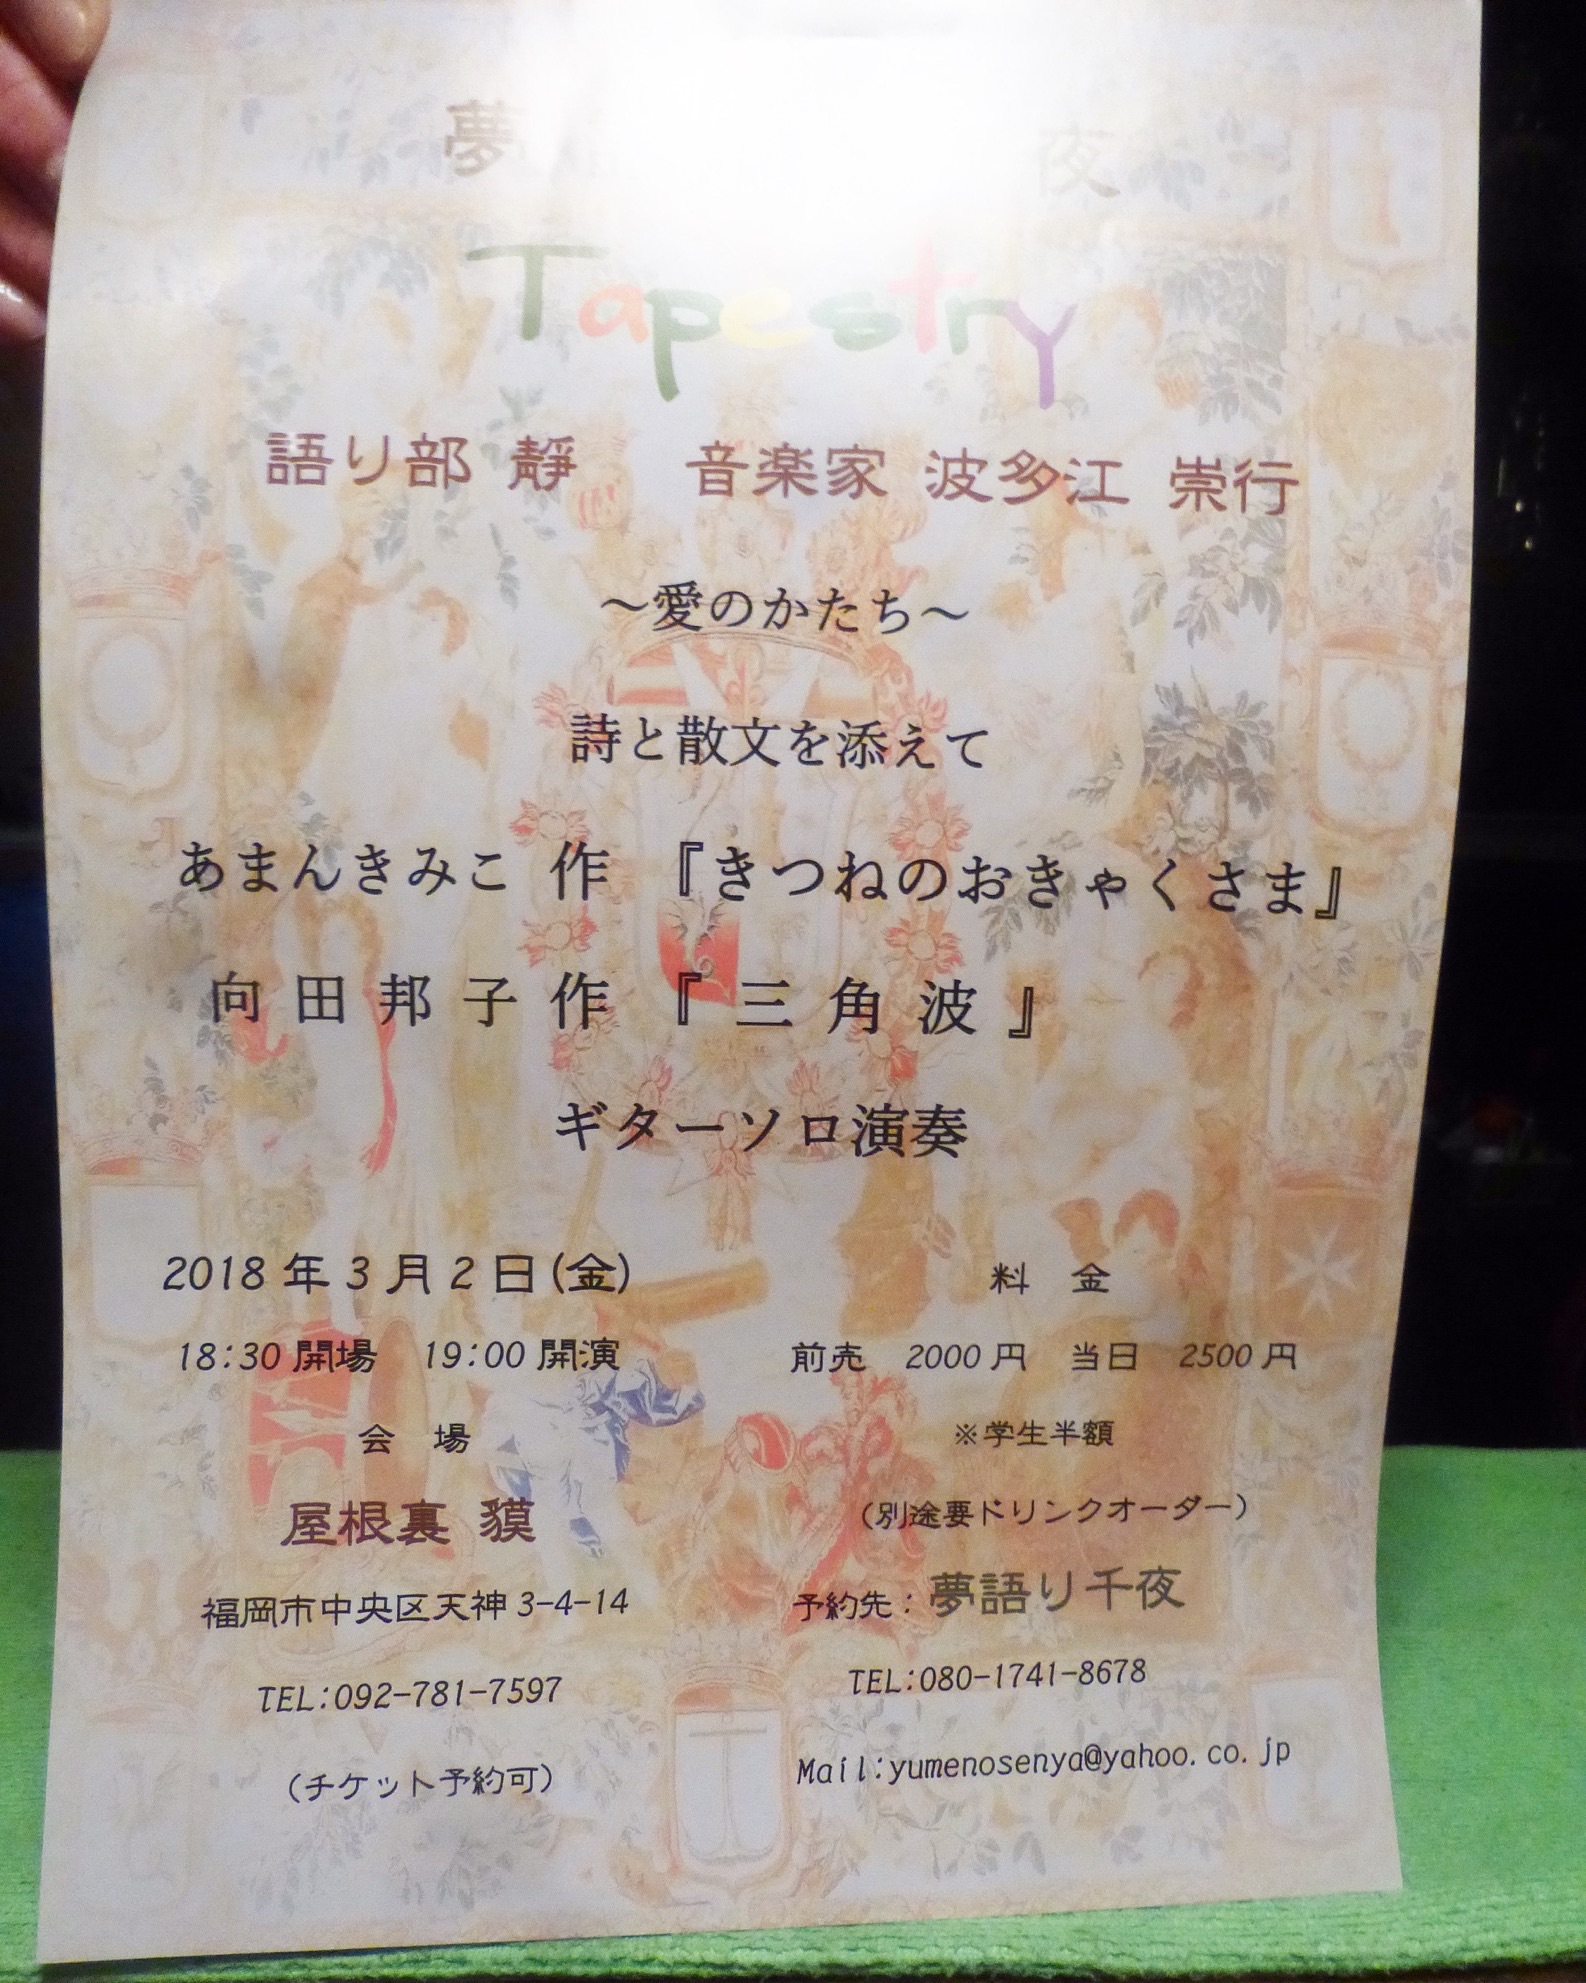 夢 夜
Tapestry
語り部 靜 音楽家 波多江 崇行
～愛のかたち～
詩と散文を添えて
あまんきみこ 作 『きつねのおきゃくさま』
向田邦子作 『三角波』
ギターソロ演奏
2018年3月2日(金)
18:30開場 19:00開演
会 場
屋根裏 貘
福岡市中央区天神3-4-14
TEL:092-781-7597
(チケット予約可)
料 金
前売 2000円 当日 2500円
※学生半額
(別途要ドリンクオーダー)
予約先：夢語り千夜
TEL:080-1741-8678
Mail:yumenosenya@yahoo.co.jp